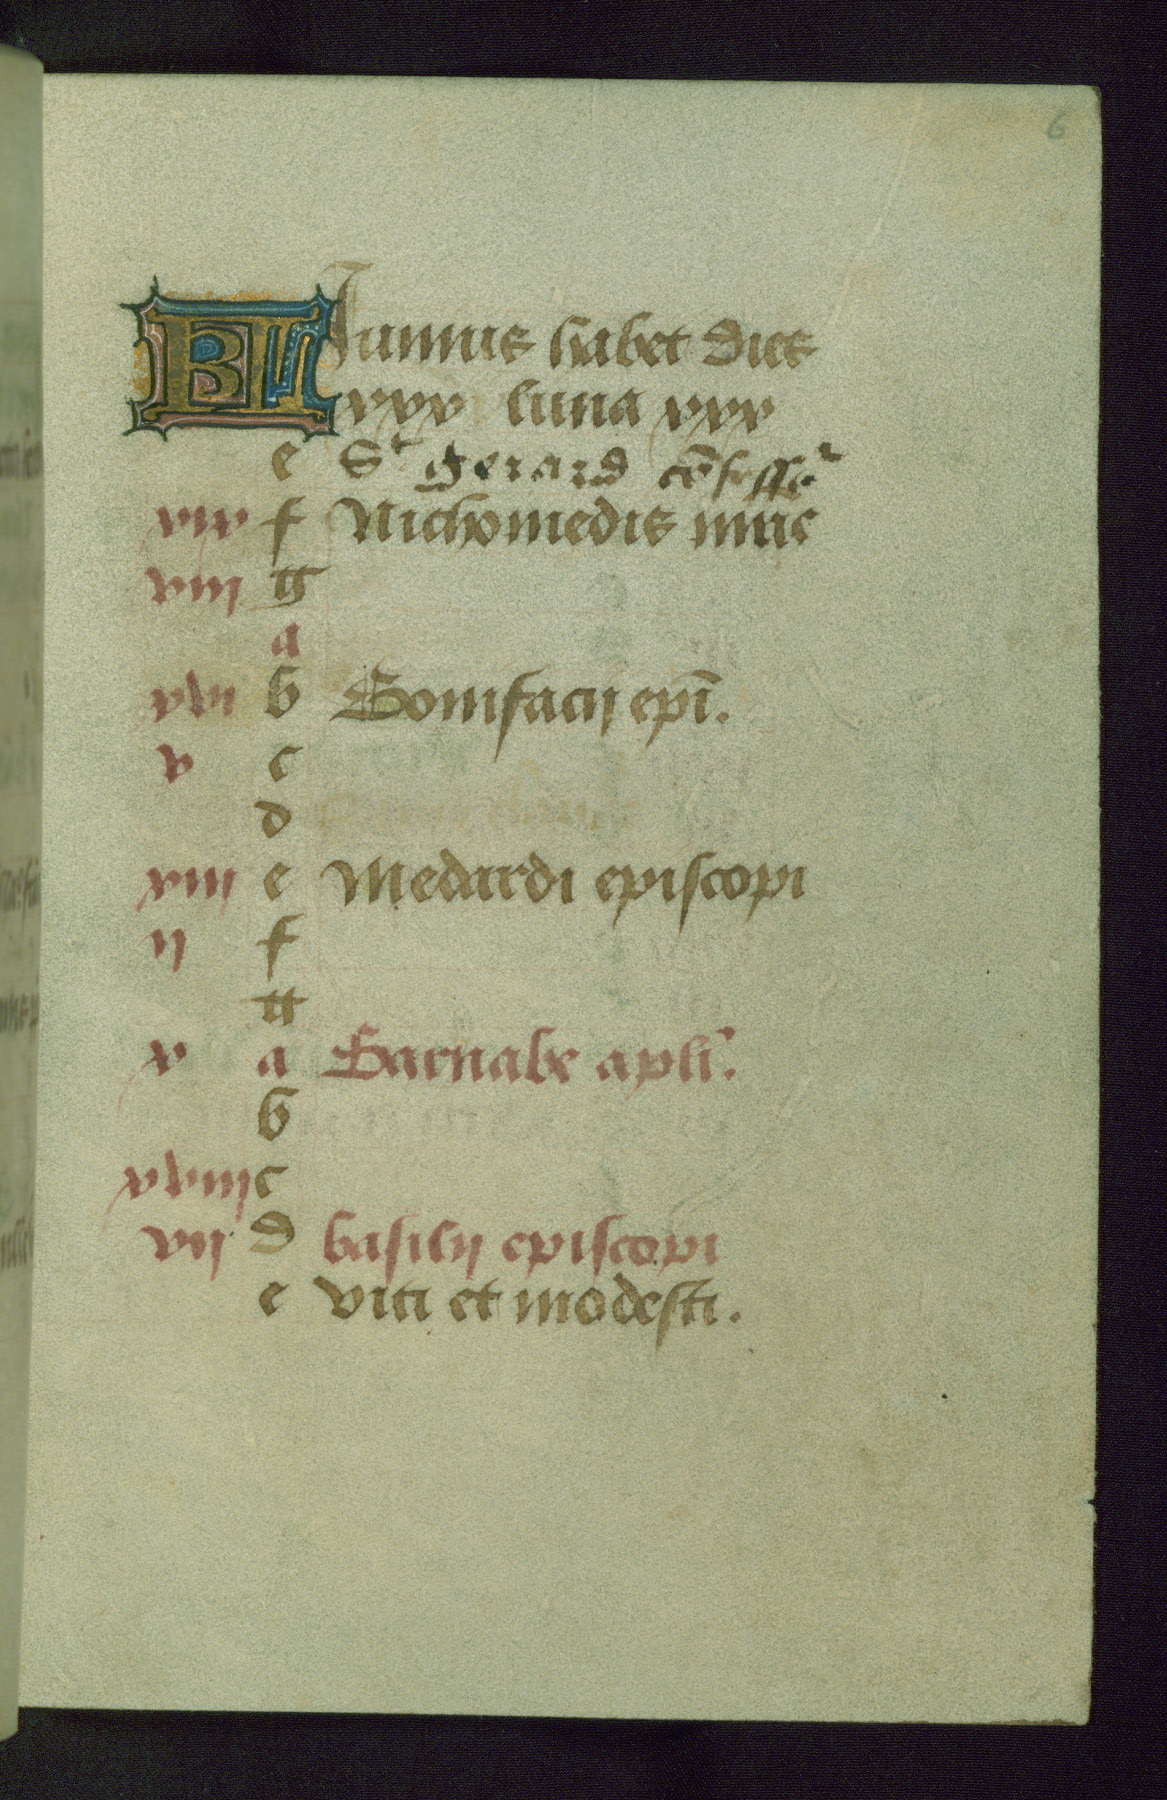 6
KL Junius habet dies
xxx luna xxx
e St gerard cōfesse
xix f Nichomedis mris
viii g
a
xvi b Bonifacij epī.
v c
d
xiii e Medardi episcopi
ij f
g
x a Barnabe apli.
b
xviii c
vij d basilij episcopi
e viti et modesti.